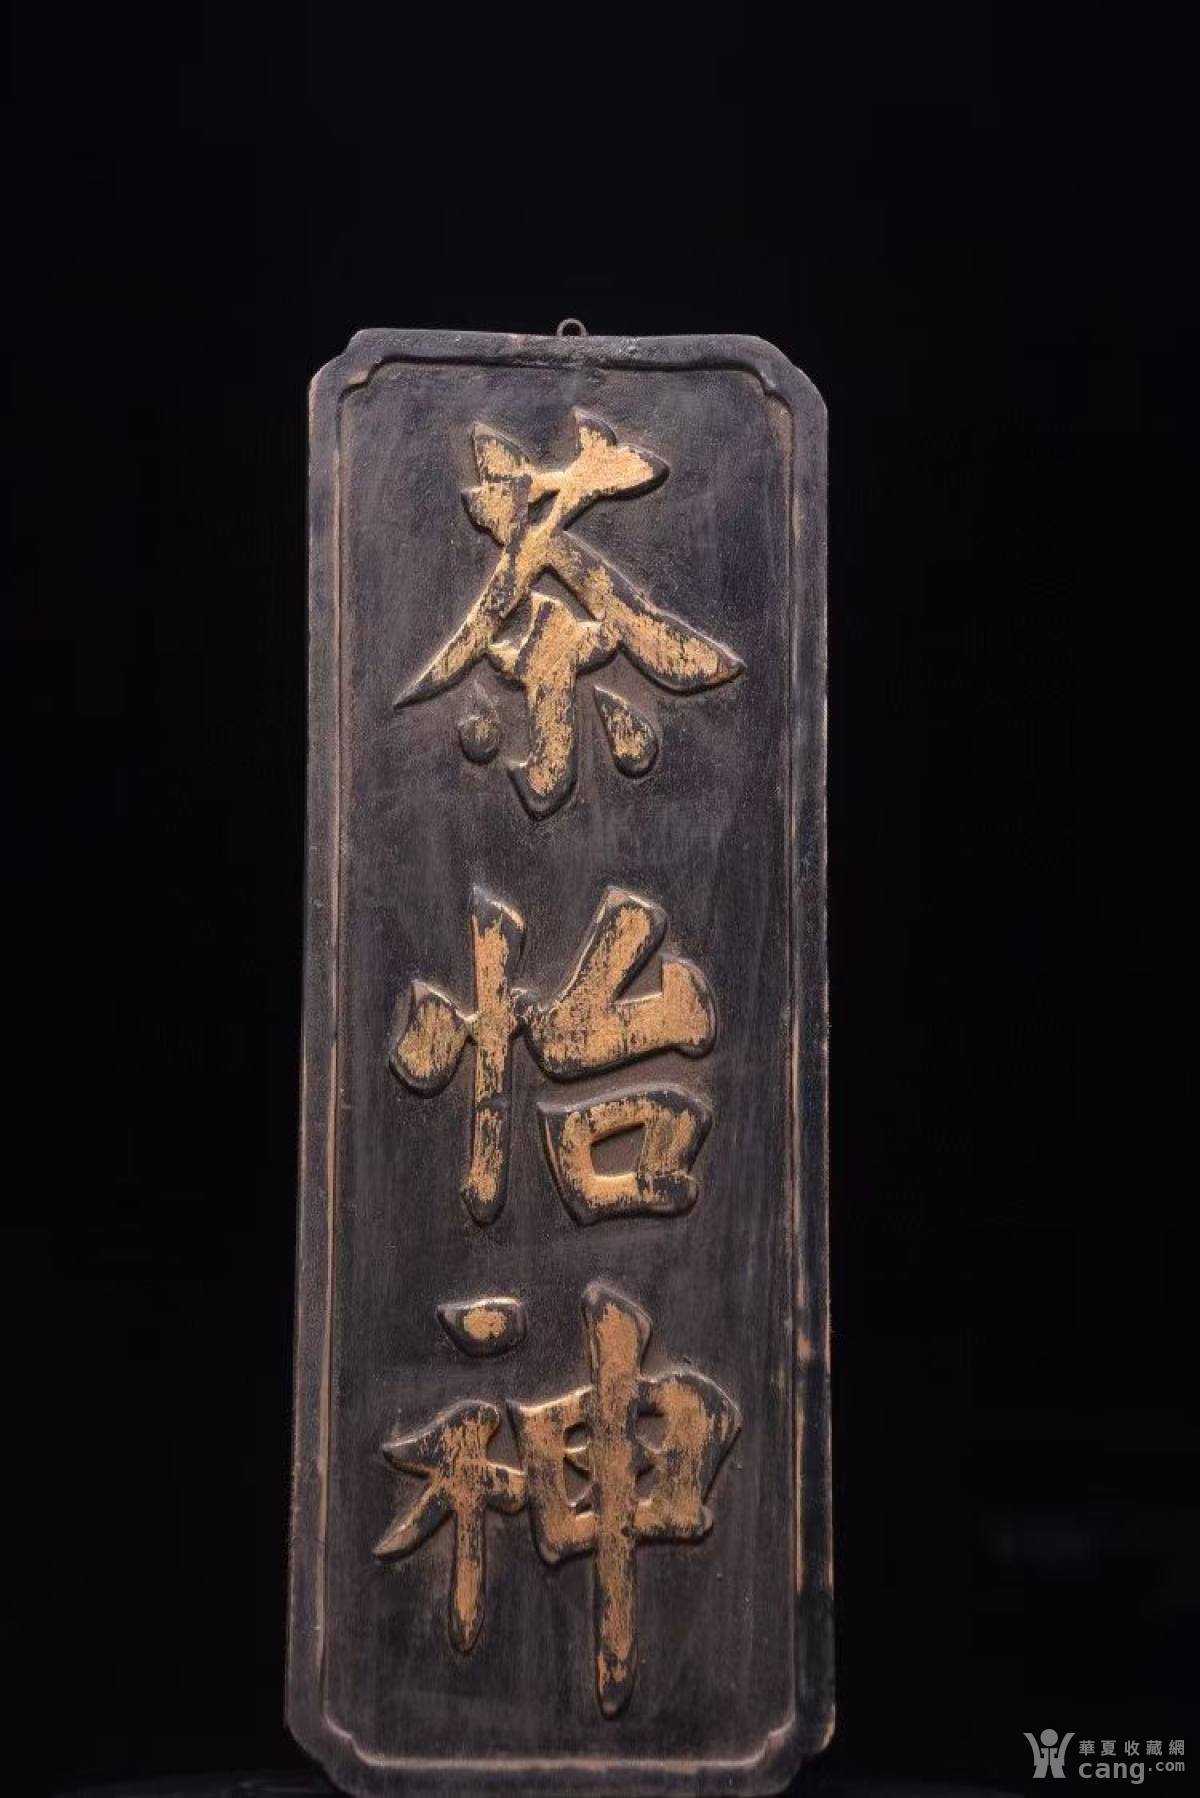 茶怡神
華夏收藏網
cang.com